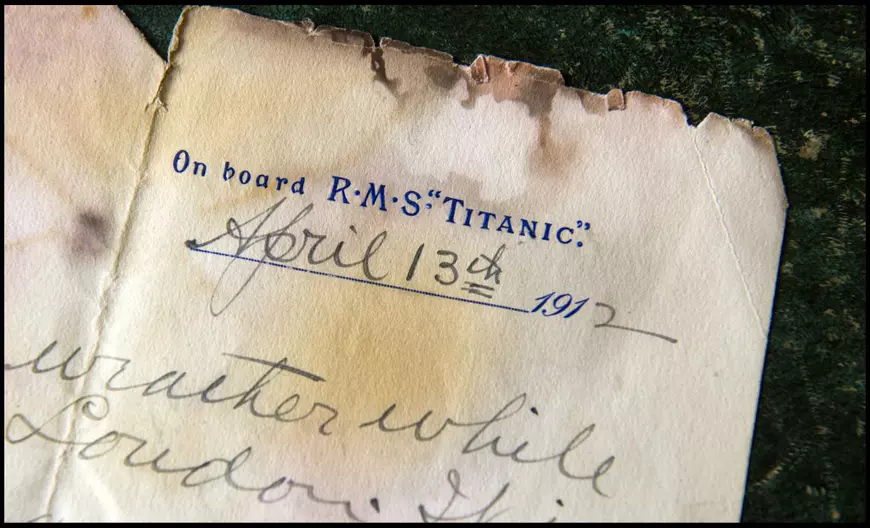 On board R·M·S·"TITANIC".
April 13th 1912
weather while
London.